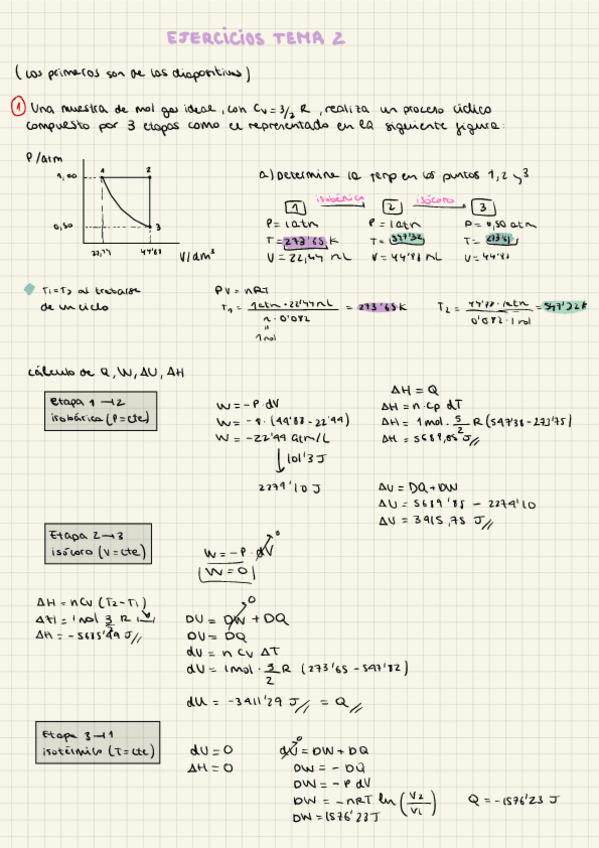 EJERCICIOS TEMA 2
(Los primeros son de las diapositivas)
① Una muestra de mol gas ideal, con Cv = 3/2 R, realiza un proceso cíclico
compuesto por 3 etapas como el representado en la siguiente figura:
P/atm
1,00
1
2
0,50
3
22,44
44'88
V/dm³
a) Determine la temp en los puntos 1, 2 y 3
isobárica
isócoro
1
2
3
P = 1 atm
P = 1 atm
P = 0,50 atm
T = 273'65 K
T = 547'32
T = 273'65
V = 22,44 mL
V = 44'88 mL
V = 44'88
T1 = T3 al tratarse
de un ciclo
PV = nRT
T1 = 1 atm · 22'44 mL / n · 0'082 = 273'65 K
1 mol
T2 = 44'88 · 1 atm / 0'082 · 1 mol = 547'32 K
cálculo de Q, W, ΔU, ΔH
Etapa 1 → 2
isobárica (P = cte)
W = -P · dV
W = -1 · (44'88 - 22'44)
W = -22'44 atm/L
101'3 J
2274'10 J
ΔH = Q
ΔH = n · Cp dT
ΔH = 1 mol · 5/2 R (547'38 - 273'75)
ΔH = 5689,85 J //
ΔU = DQ + DW
ΔU = 5689'85 - 2274'10
ΔU = 3415,75 J //
Etapa 2 → 3
isócoro (V = cte)
W = -P · dV 0
W = 0
ΔH = n Cv (T2 - T1)
ΔH = 1 mol 5/2 R
ΔH = -5685'49 J //
DU = DW 0 + DQ
DU = DQ
dU = n Cv ΔT
dU = 1 mol · 3/2 R (273'65 - 547'32)
dU = -3411'29 J // = Q //
Etapa 3 → 1
isotérmico (T = cte)
dU = 0
ΔH = 0
dU 0 = DW + DQ
DW = - DQ
DW = - P dV
DW = - nRT ln (V2/V1)
DW = 1576'23 J
Q = -1576'23 J